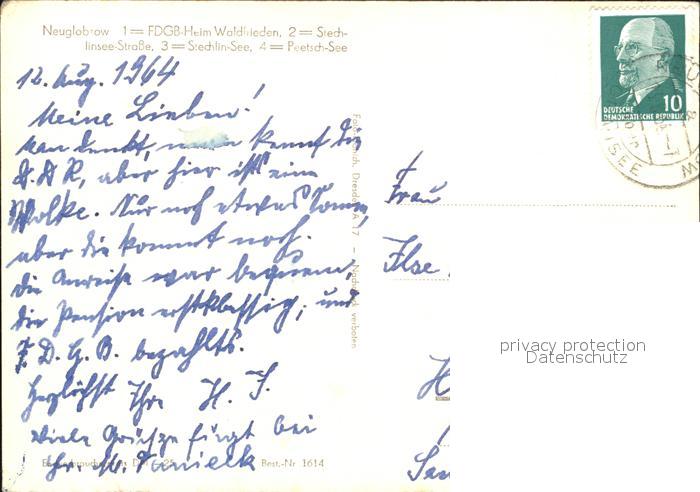 Neuglobsow 1 = FDGB-Heim Waldfrieden, 2 = Stech-
linsee-Straße, 3 = Stechlin-See, 4 = Peetsch-See
12. Aug. 1964
Meine Lieben!
Man denkt, man kennt die
D.D.R, aber hier ist's eine
Wolke. Nur noch etwas Sonne,
aber die kommt noch.
Die Anreise war bequem,
die Pension erstklassig; und
F.D.G.B. bezahlts.
Herzlichst Ihre H. J.
Viele Grüsze fügt bei
Ihr
Best.-Nr. 1614
Dresden A 17 – Nachdruck verboten
Frau
Ilse
H
DEUTSCHE
DEMOKRATISCHE REPUBLIK
10
SEE
privacy protection
Datenschutz